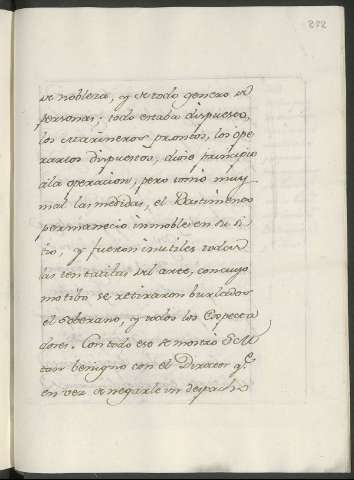 252
de nobleza, y de todo genero de
personas; todo estaba dispuesto,
los Marineros promtos, los ope
rarios dispuestos, diose principio
àla operacion, pero tomó muy
mal las medidas, el Bastimento
permaneciò inmoble en su si
tio, y fueron inutiles todas
las tentatibas del arte, con cuyo
motibo se retiraron burlados
el Soberano, y todos los Expecta
dores. Con todo eso se mostrò S.M.
tan benigno con el Director q.e
en vez de negarle un despacho